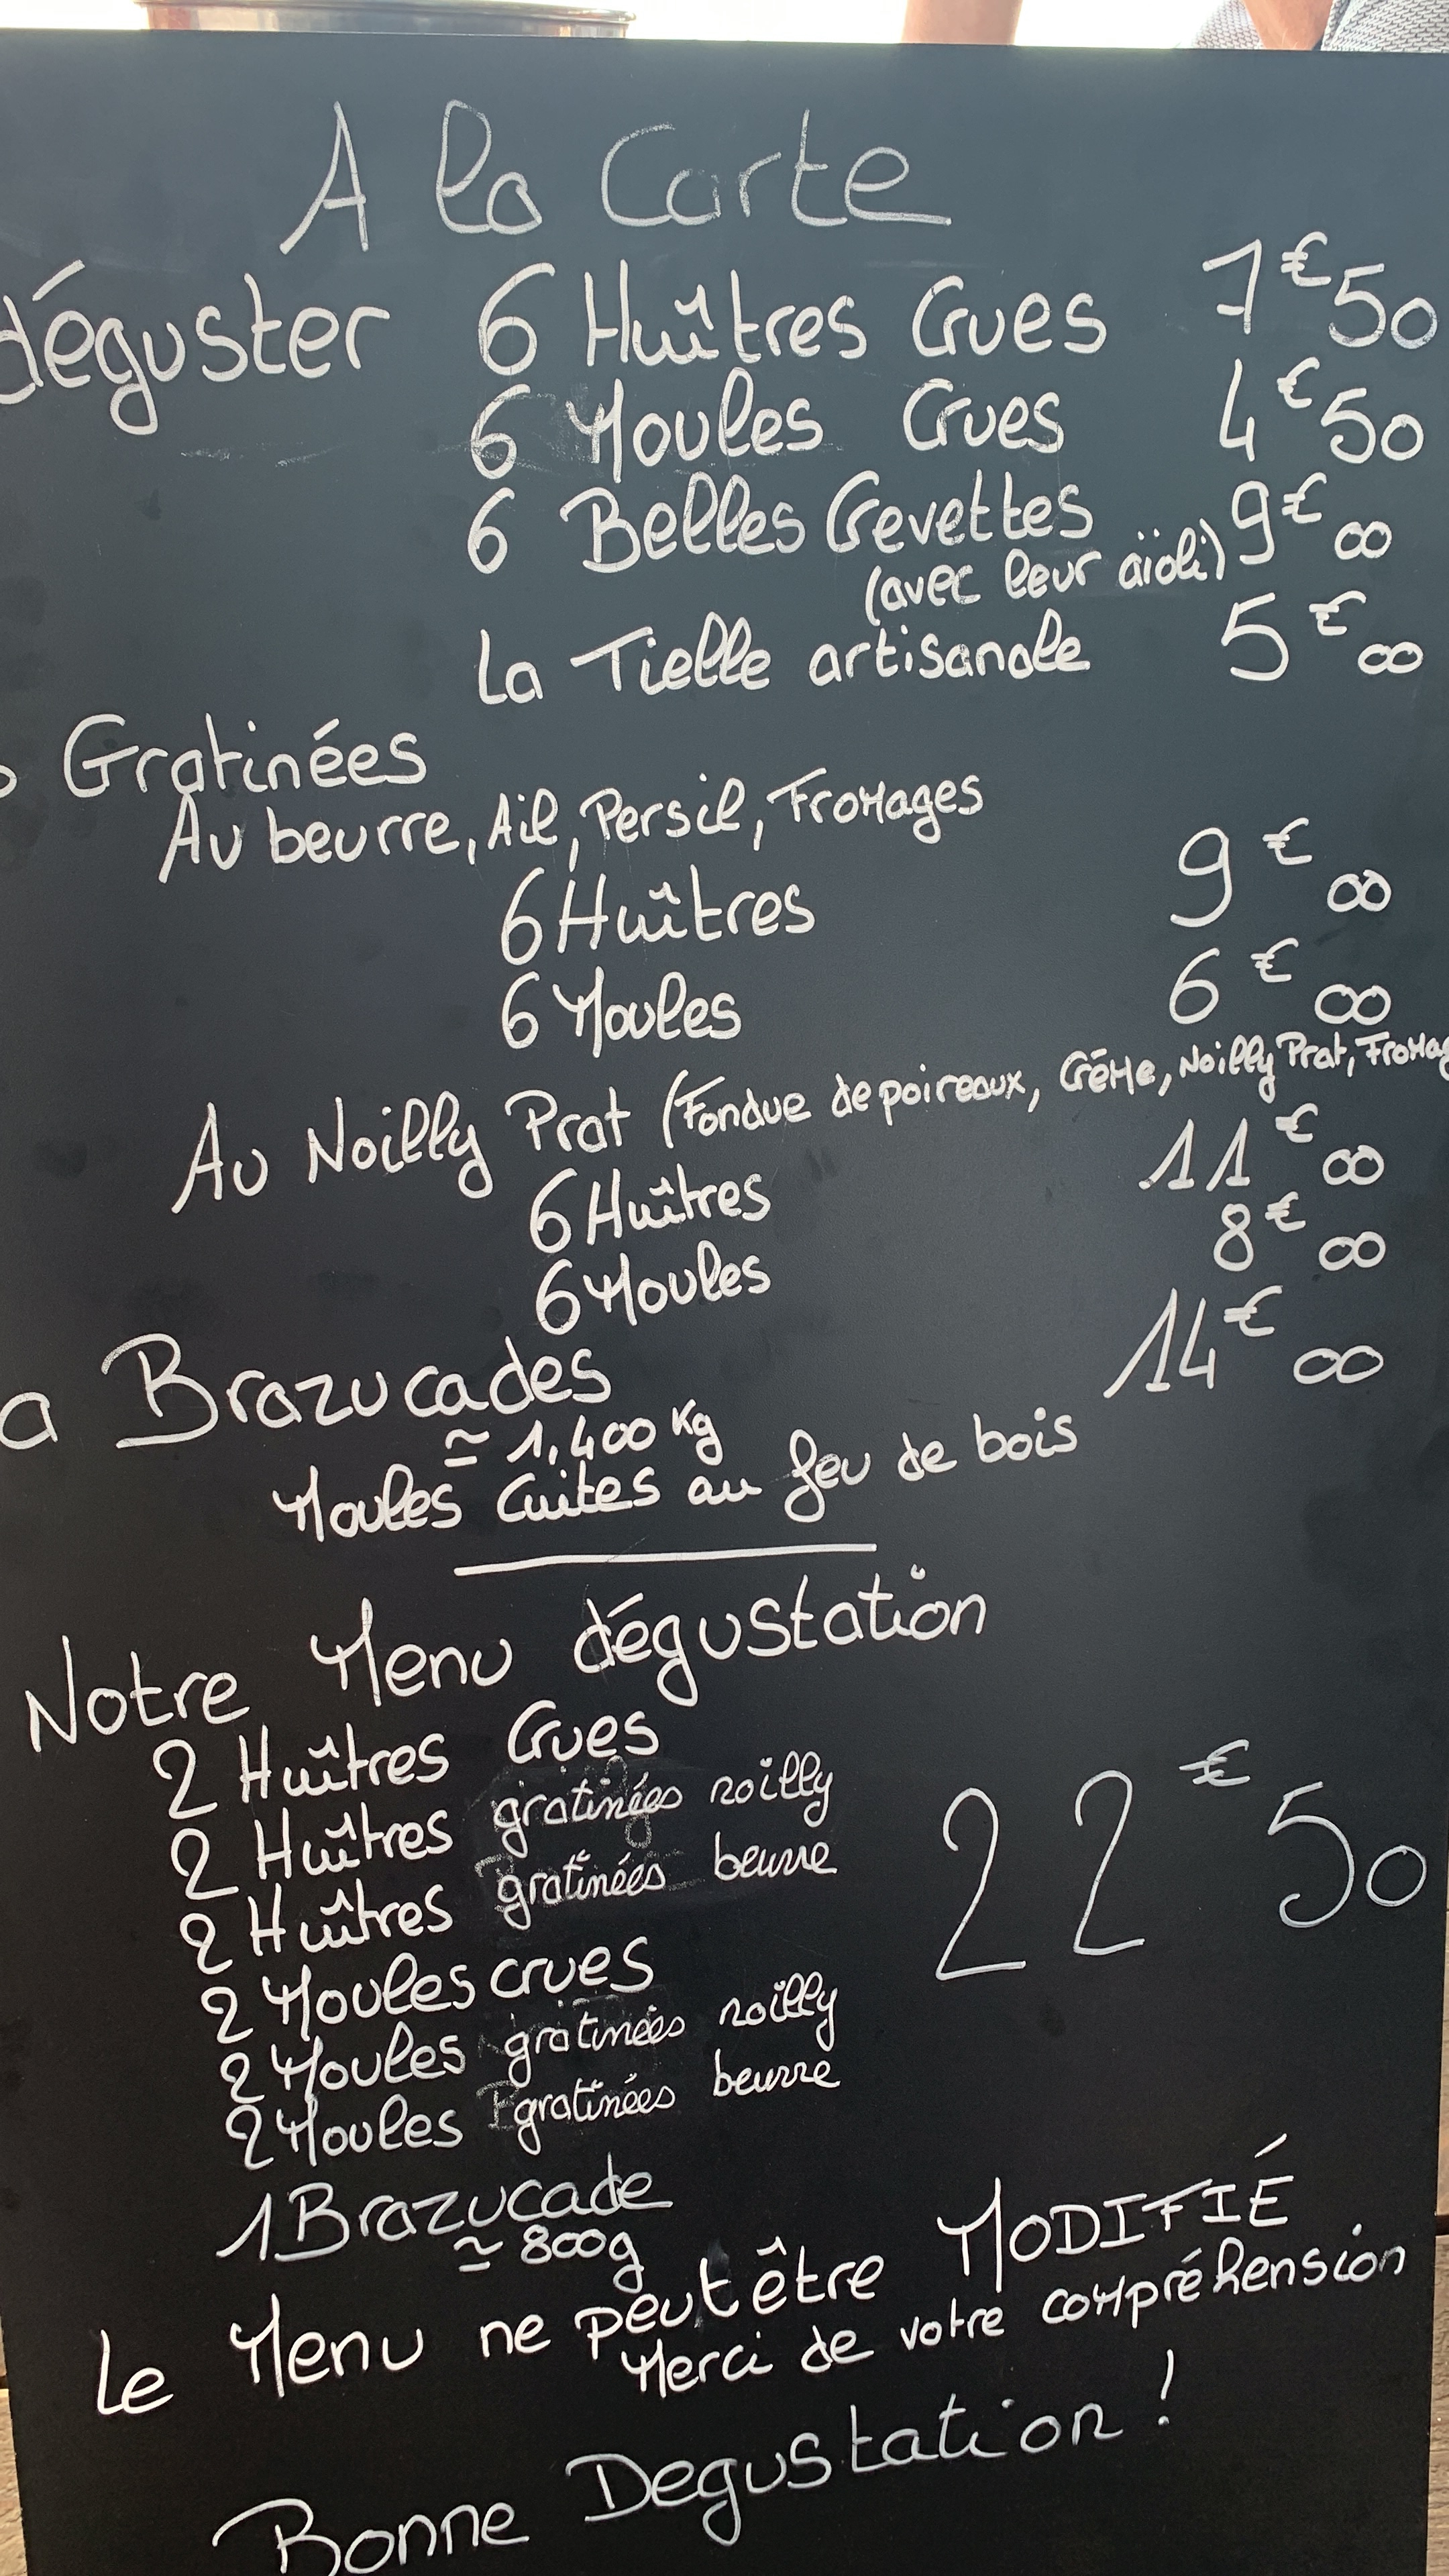 A la Carte
déguster 6 Huîtres Crues 7€50
6 Moules Crues 4€50
6 Belles Crevettes 9€00
(avec leur aïoli)
La Tielle artisanale 5€00
Gratinées
Au beurre, Ail, Persil, Fromages
6 Huîtres 9€00
6 Moules 6€00
Au Noilly Prat (Fondue de poireaux, Crème, Noilly Prat, Fromag
6 Huîtres 11€00
6 Moules 8€00
a Brazucades 14€00
≃ 1,400 Kg
Moules Cuites au feu de bois
Notre Menu dégustation
2 Huîtres Crues
2 Huîtres gratinées noilly
2 Huîtres gratinées beurre 22€50
2 Moules crues
2 Moules gratinées noilly
2 Moules gratinées beurre
1 Brazucade
≃ 800g
Le Menu ne peut être MODIFIÉ
Merci de votre compréhension
Bonne Degustation !